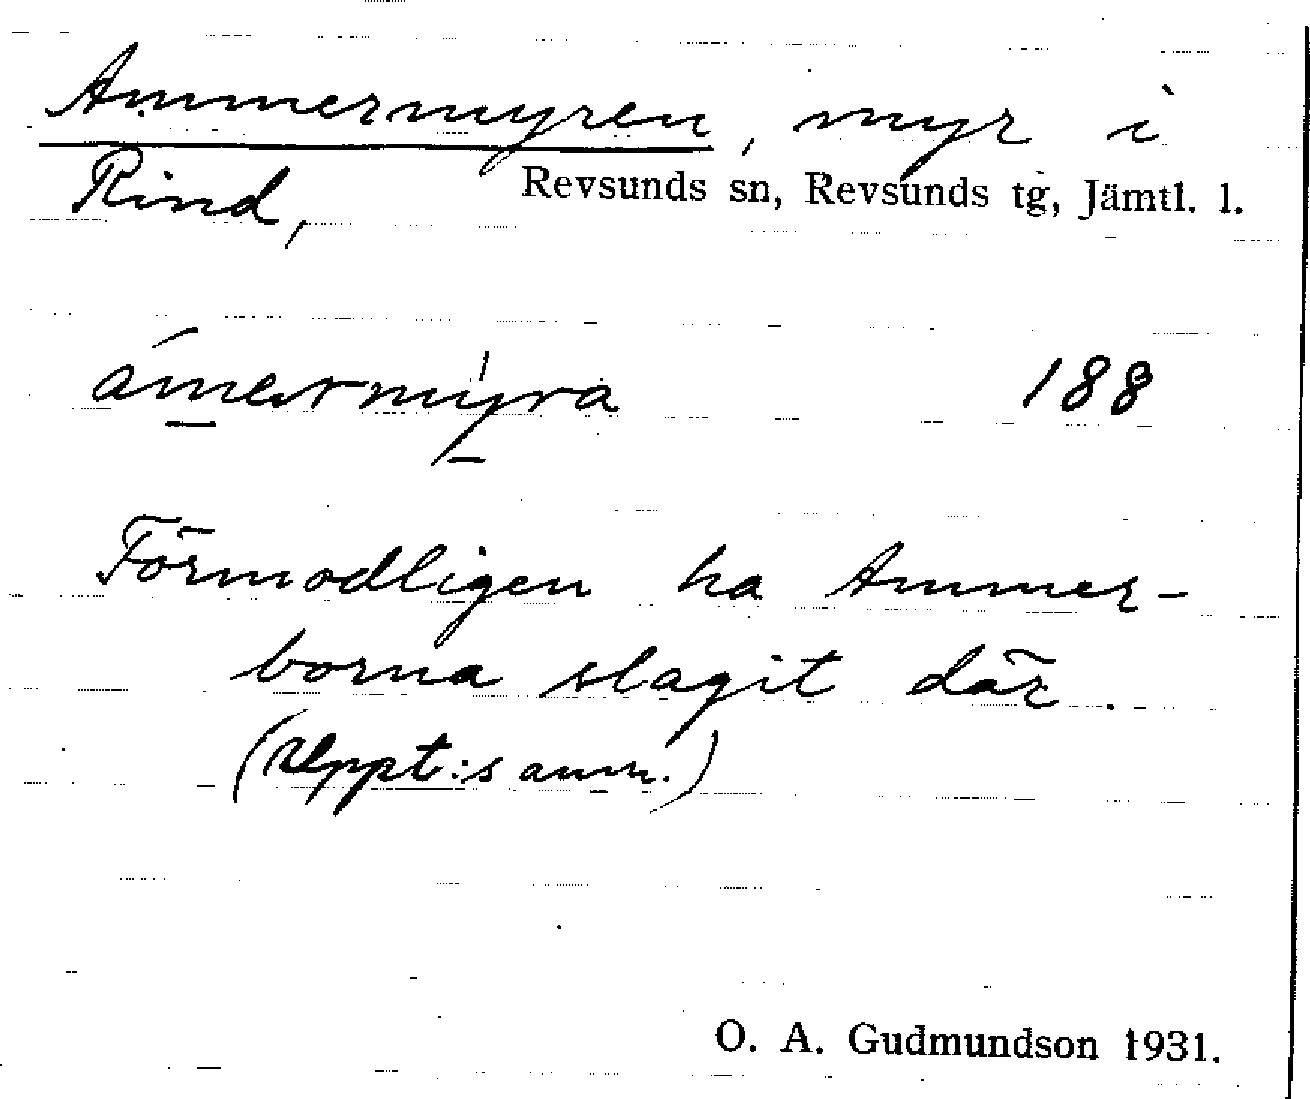 Ammermyren, myr i
Rind, Revsunds sn, Revsunds tg, Jämtl. l.
ámermýra 188
Förmodligen ha Ammer-
borna slagit där.
(Uppt:s anm.)
O. A. Gudmundson 1931.